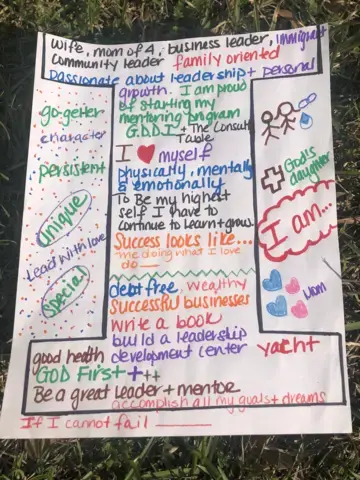 Wife, mom of 4, business leader, immigrant
Community leader family oriented
Passionate about leadership + personal
growth. I am proud
of starting my
mentoring program
G.D.D.I + The Consult
Table
I myself
physically, mentally
& emotionally
To Be my highest
self I have to
continue to learn + grow
Success looks like...
me doing what I love
do ___
debt free, wealthy
Successful businesses
write a book
build a leadership
development center
yacht
good health
GOD First + + +
Be a great leader + mentor
accomplish all my goals + dreams
If I cannot fail ______
go-getter
character
persistent
unique
Lead with love
special
God's
daughter
I am...
Mom